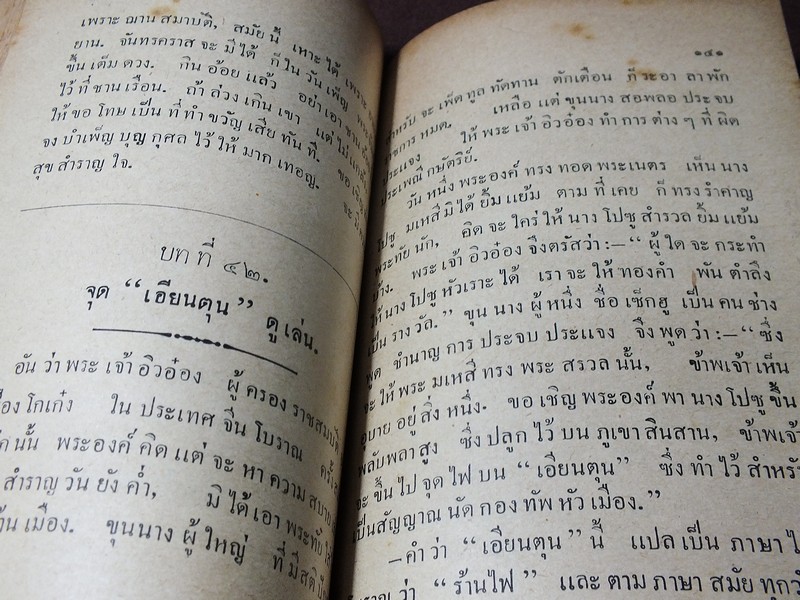 เพราะ ฌาน สมาบัติ, สมัย นี้ เหาะ ได้ เพราะ
ยาน. จันทรคราส จะ มี ได้ ก็ ใน วัน เพ็ญ
ขึ้น เต็ม ดวง. กิน อ้อย แล้ว อย่า เอา ชาน
ไว้ ที่ ชาน เรือน. ถ้า ล่วง เกิน เขา แต่ ไม่
ให้ ขอ โทษ เป็น ที่ ทำ ขวัญ เสีย ทัน ที. ขอ
จง บำเพ็ญ บุญ กุศล ไว้ ให้ มาก เทอญ.
สุข สำราญ ใจ.
บท ที่ ๔๒.
จุด “เอียนตุน” ดู เล่น.
อัน ว่า พระ เจ้า อิวอ๋อง ผู้ ครอง ราชสมบัติ
เมือง โกเก๋ง ใน ประเทศ จีน โบราณ ครั้ง
นั้น พระองค์ คิด แต่ จะ หา ความ สบาย
สำราญ วัน ยัง ค่ำ, มิ ได้ เอา พระทัย
บ้าน เมือง. ขุนนาง ผู้ ใหญ่ ที่ มี สติ
๑๔๑
สำหรับ จะ เพ็ด ทูล ทัดทาน ตักเตือน ก็ ระอา ลา พัก
ราชการ หมด. เหลือ แต่ ขุนนาง สอพลอ ประจบ
ประแจง ให้ พระ เจ้า อิวอ๋อง ทำ การ ต่าง ๆ ที่ ผิด
ประเพณี กษัตริย์.
วัน หนึ่ง พระองค์ ทรง ทอด พระเนตร เห็น นาง
โปซู มเหสี มิ ได้ ยิ้ม แย้ม ตาม ที่ เคย ก็ ทรง รำคาญ
พระทัย นัก, คิด จะ ใคร่ ให้ นาง โปซู สำรวล ยิ้ม แย้ม
บ้าง. พระ เจ้า อิวอ๋อง จึงตรัส ว่า :— “ ผู้ ใด จะ กระทำ
ให้ นาง โปซู หัวเราะ ได้ เรา จะ ให้ ทองคำ พัน ตำลึง
เป็น ราง วัล.” ขุน นาง ผู้ หนึ่ง ชื่อ เซ็กฮู เป็น คน ช่าง
พูด ชำนาญ การ ประจบ ประแจง จึง พูด ว่า :— “ ซึ่ง
จะ ให้ พระ มเหสี ทรง พระ สรวล นั้น, ข้าพเจ้า เห็น
อุบาย อยู่ สิ่ง หนึ่ง. ขอ เชิญ พระองค์ พา นาง โปซู ขึ้น
พลับพลา สูง ซึ่ง ปลูก ไว้ บน ภูเขา สินสาน, ข้าพเจ้า
จะ ขึ้น ไป จุด ไฟ บน “ เอียนตุน ” ซึ่ง ทำ ไว้ สำหรับ
เป็น สัญญาณ นัด กอง ทัพ หัว เมือง.”
—คำ ว่า “ เอียนตุน ” นี้ แปล เป็น ภาษา
โบราณ ว่า “ ร้านไฟ ” และ ตาม ภาษา สมัย ทุกวัน